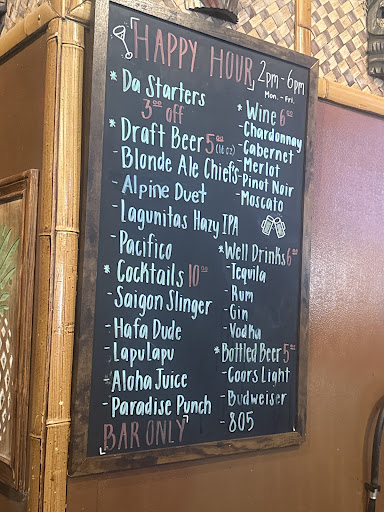 HAPPY HOUR
2pm - 6pm
Mon. - Fri.
* Da Starters
3.00 off
* Draft Beer 5.00 (16 oz)
- Blonde Ale Chief's
- Alpine Duet
- Lagunitas Hazy IPA
- Pacifico
* Cocktails 10.00
- Saigon Slinger
- Hafa Dude
- Lapu Lapu
- Aloha Juice
- Paradise Punch
BAR ONLY
* Wine 6.00
- Chardonnay
- Cabernet
- Merlot
- Pinot Noir
- Moscato
* Well Drinks 6.00
- Tequila
- Rum
- Gin
- Vodka
* Bottled Beer 5.00
- Coors Light
- Budweiser
- 805